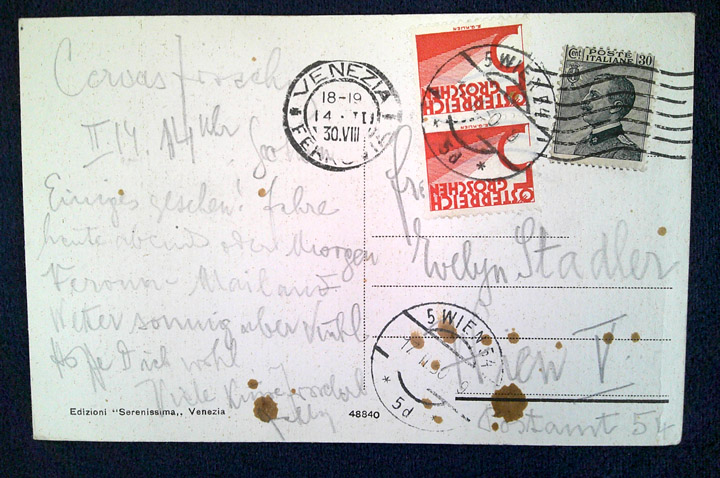 II 14. 14 Uhr
Einiges gesehen! Fahre
heute abends oder Morgen
Verona - Mailand
Wetter sonnig aber kühl
Hoffe Dich wohl
Viele
Edizioni "Serenissima,, Venezia
48840
VENEZIA
18-19
30.VIII
FERROVIA
B.GAUER
5
ÖSTERREICH
GROSCHEN
5
ÖSTERREICH
GROSCHEN
Cent POSTE ITALIANE 30
5 WIEN
* 5d
Evelyn Stadler
Wien V.
Postamt 54
5 WIEN 54
* 5d